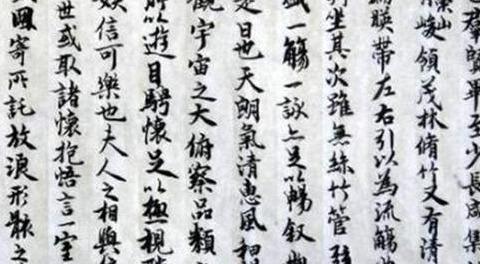 羣賢畢至少長咸集
山峻領茂林脩竹又有清
映帶左右引以為流觴曲
列坐其次雖無絲竹管弦
盛一觴一詠亦足以暢叙
是日也天朗氣清惠風和
觀宇宙之大俯察品類
所以遊目騁懷足以極視聽
娛信可樂也夫人之相與
世或取諸懷抱悟言一室
因寄所託放浪形骸之